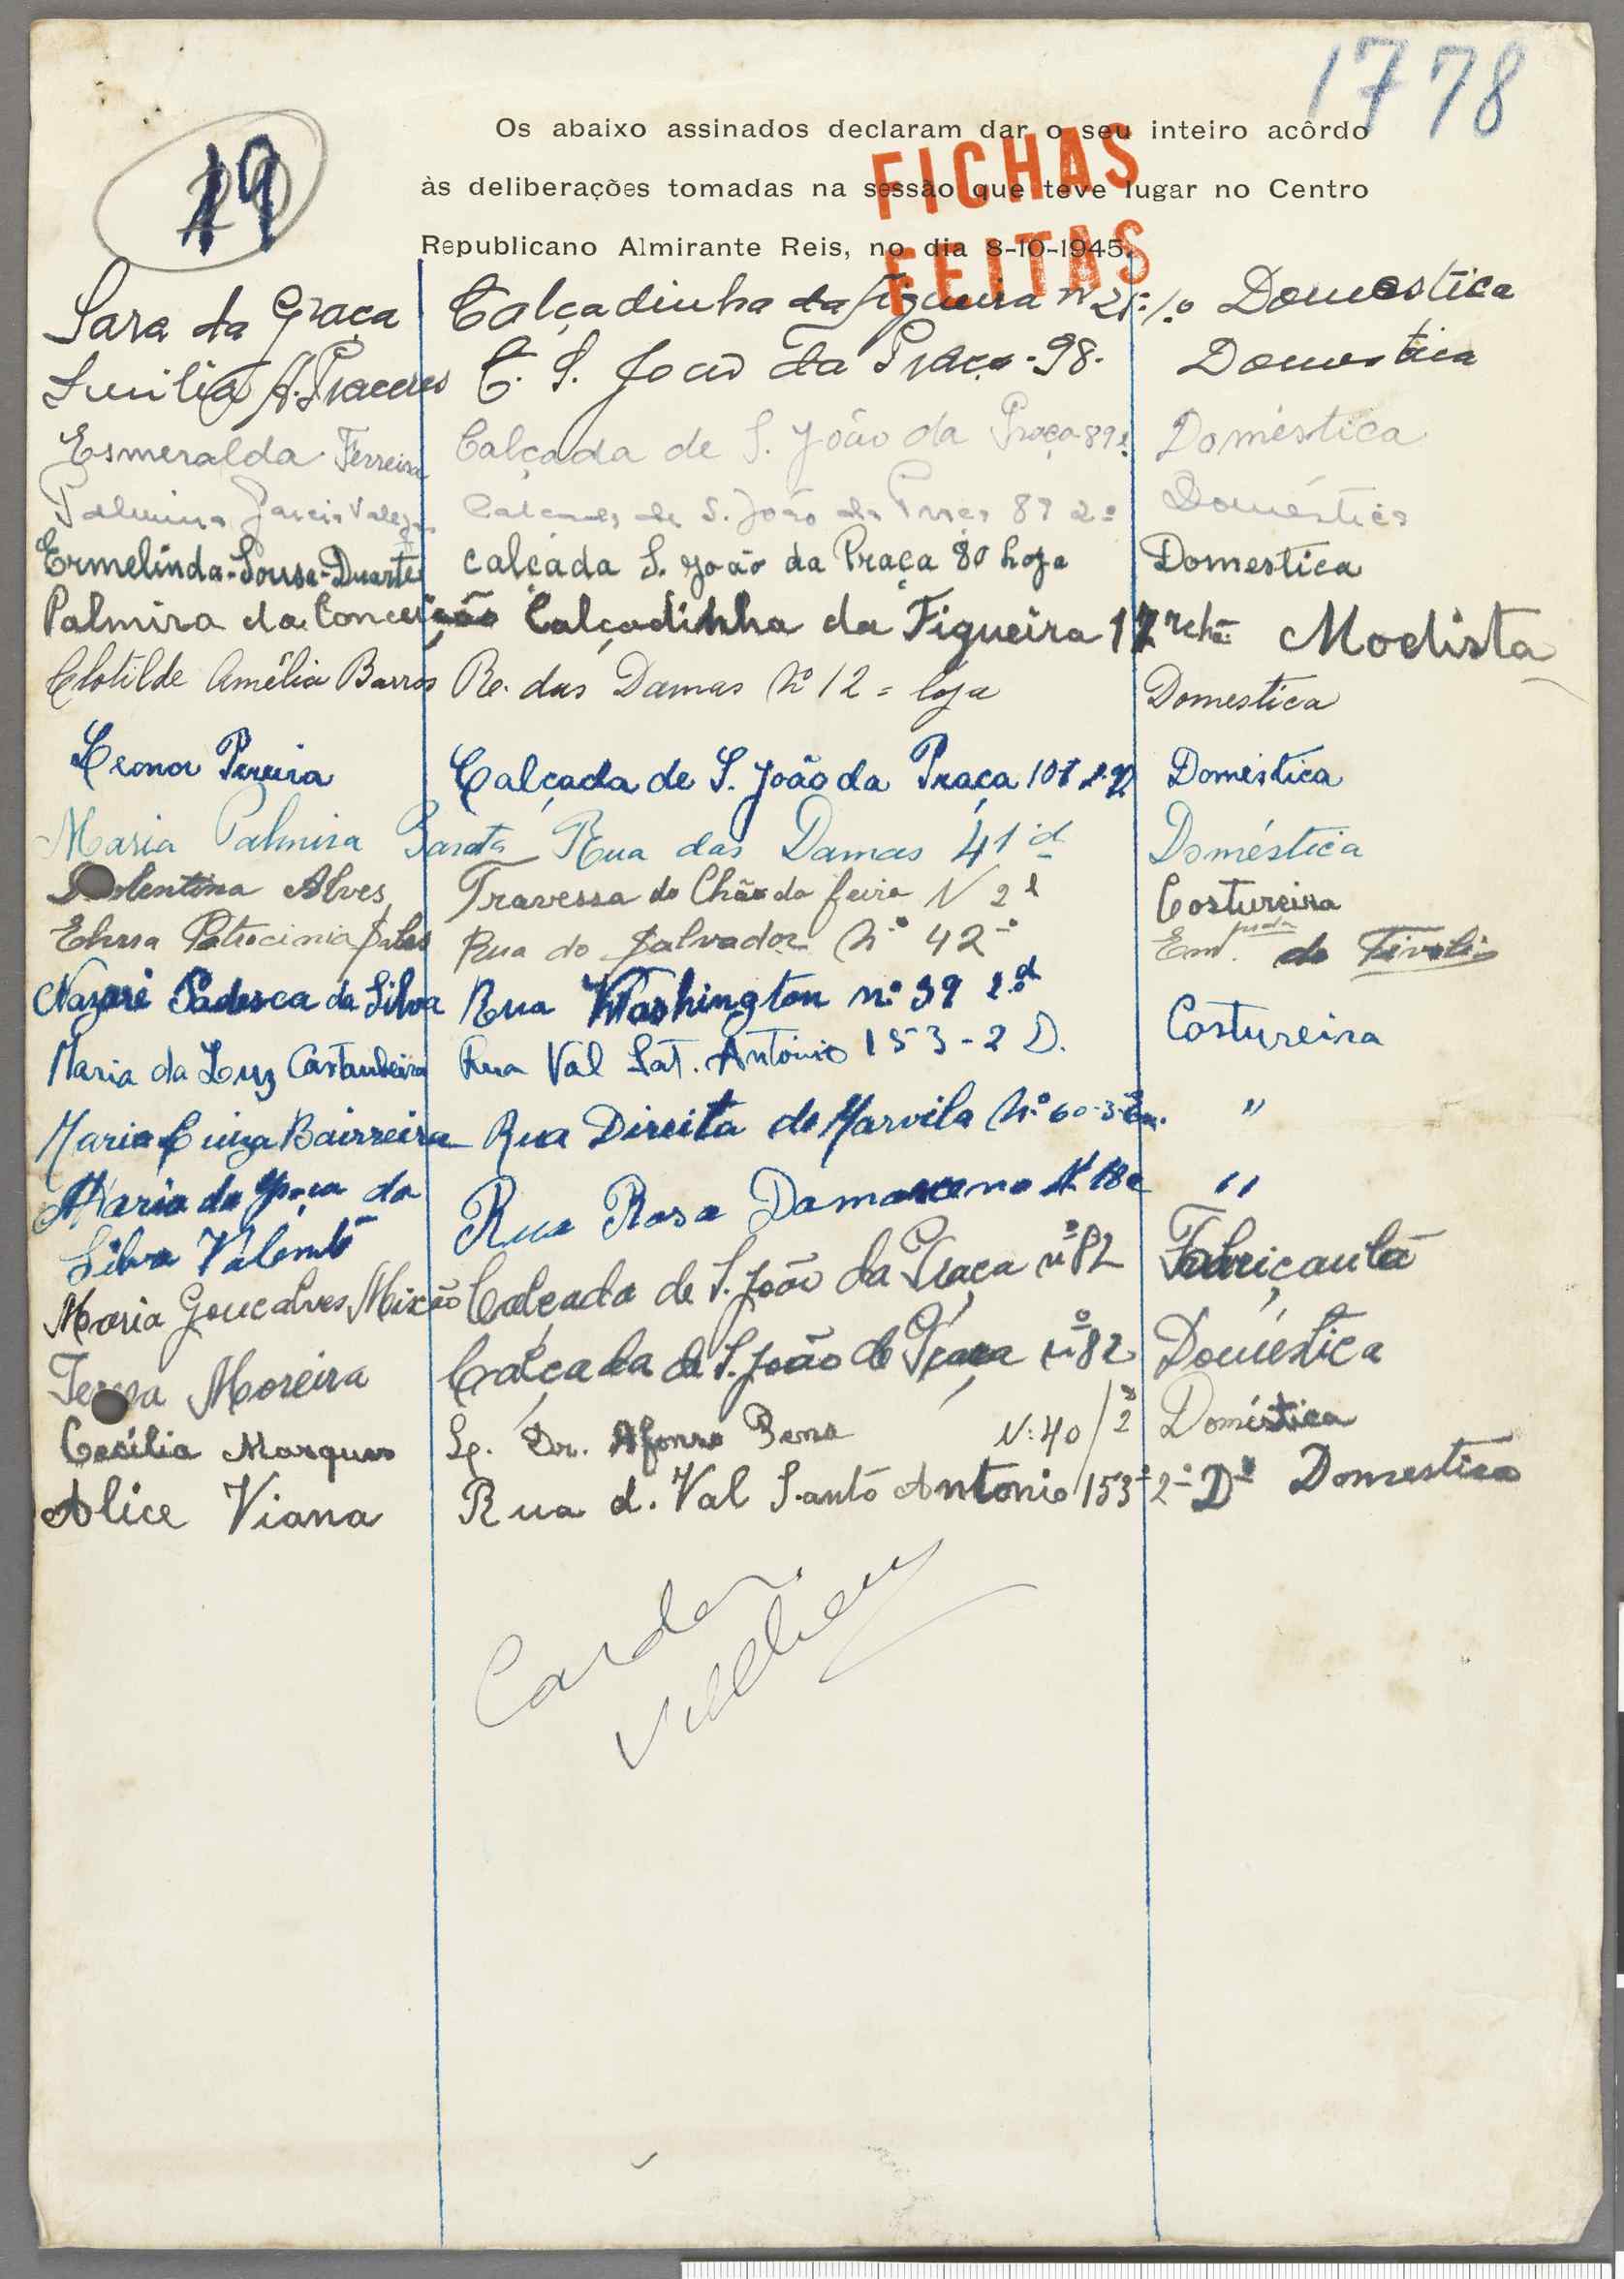 1778
19
Os abaixo assinados declaram dar o seu inteiro acôrdo
às deliberações tomadas na sessão que teve lugar no Centro
Republicano Almirante Reis, no dia 8-10-1945.
FICHAS
FEITAS
Sara da Graça Calçadinha da Figueira nº 21-1.º Domestica
A. Prazeres C. S. João da Praça-98- Domestica
Esmeralda Ferreira Calçada de S. João da Praça-89 Doméstica
Palmira Garcia Calçada de S. João da Praça 89 2º Doméstica
Ermelinda-Sousa-Duarte calçada S. João da Praça 80 loja Domestica
Palmira da Conceição Calçadinha da Figueira 17 rchã Modista
Clotilde Amélia Barros Re. das Damas Nº 12 = loja Domestica
Leonor Pereira Calçada de S. João da Praça 101 Doméstica
Maria Palmira Barata Rua das Damas 41 d Doméstica
Alves Travessa do Chão da feira N 2 Costureira
Patrocinia Rua do Salvador Nº 42 Em. do Tivoli
Nazaré da Silva Rua Washington nº 39 2.º d
Maria da Luz Castanheira Rua Val Sat. António 153-2 D. Costureira
Maria Luiza Bairreira Rua Direita de Marvila Nº 60-3- "
Maria da Graça da Rua Rosa Damasceno Nº 18 "
Silva Valente
Maria Gonçalves Mixão Calçada de S. João da Praça nº 82 Fabricanta
Teresa Moreira Calçada de S. João de Praça nº 82 Doméstica
Cecília Marques Lg. Dr. Afonso Pena N. 40/2º Doméstica
Alice Viana Rua d. Val Santo Antonio 153-2º Dº Domestica